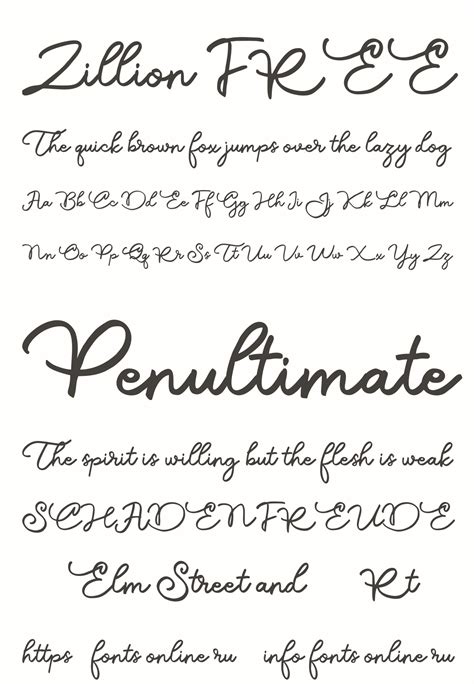 Zillion FREE
The quick brown fox jumps over the lazy dog
Aa Bb Cc Dd Ee Ff Gg Hh Ii Jj Kk Ll Mm
Nn Oo Pp Qq Rr Ss Tt Uu Vv Ww Xx Yy Zz
Penultimate
The spirit is willing but the flesh is weak
SCHADENFREUDE
Elm Street and Rt
https fonts online ru info fonts online ru